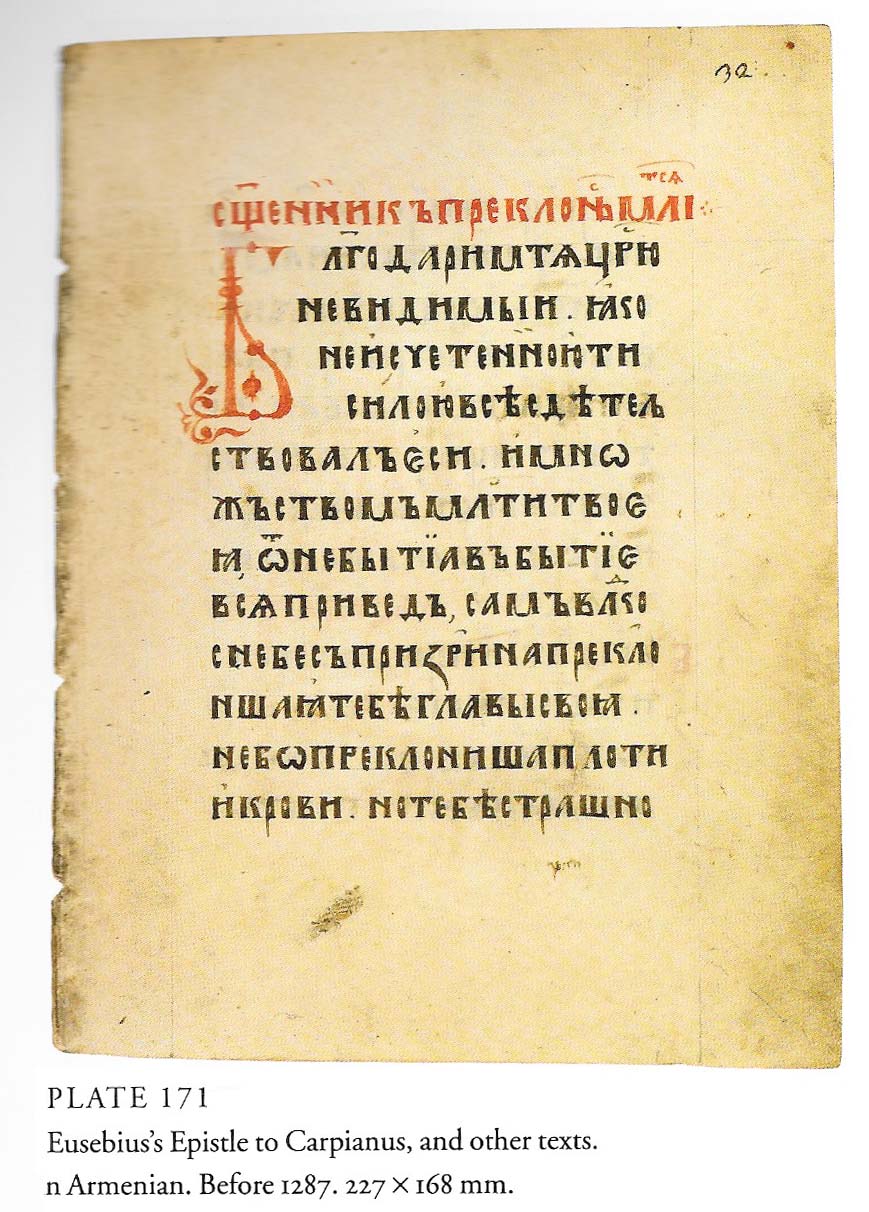 32
сщ҃еннікъ преклон҇ь мл҃їтсѧ
Блг҃одаримтѧ цр҃ю
невидимыи. ꙗ҆ко
неисчетенноюти
силоювсѣсдѣтел
ствовалъєси. имнѡ
жъствомъмл҃титвоє
ꙗ, ѿнебытїавъбытїє
всѧприведъ, самъвлⷣко
снебесъпризрина прекло
ншаꙗтебѣглавысвоꙗ.
небѡпреклонишаплоти
икрови. нотебѣстрашно
PLATE 171
Eusebius’s Epistle to Carpianus, and other texts.
n Armenian. Before 1287. 227 × 168 mm.